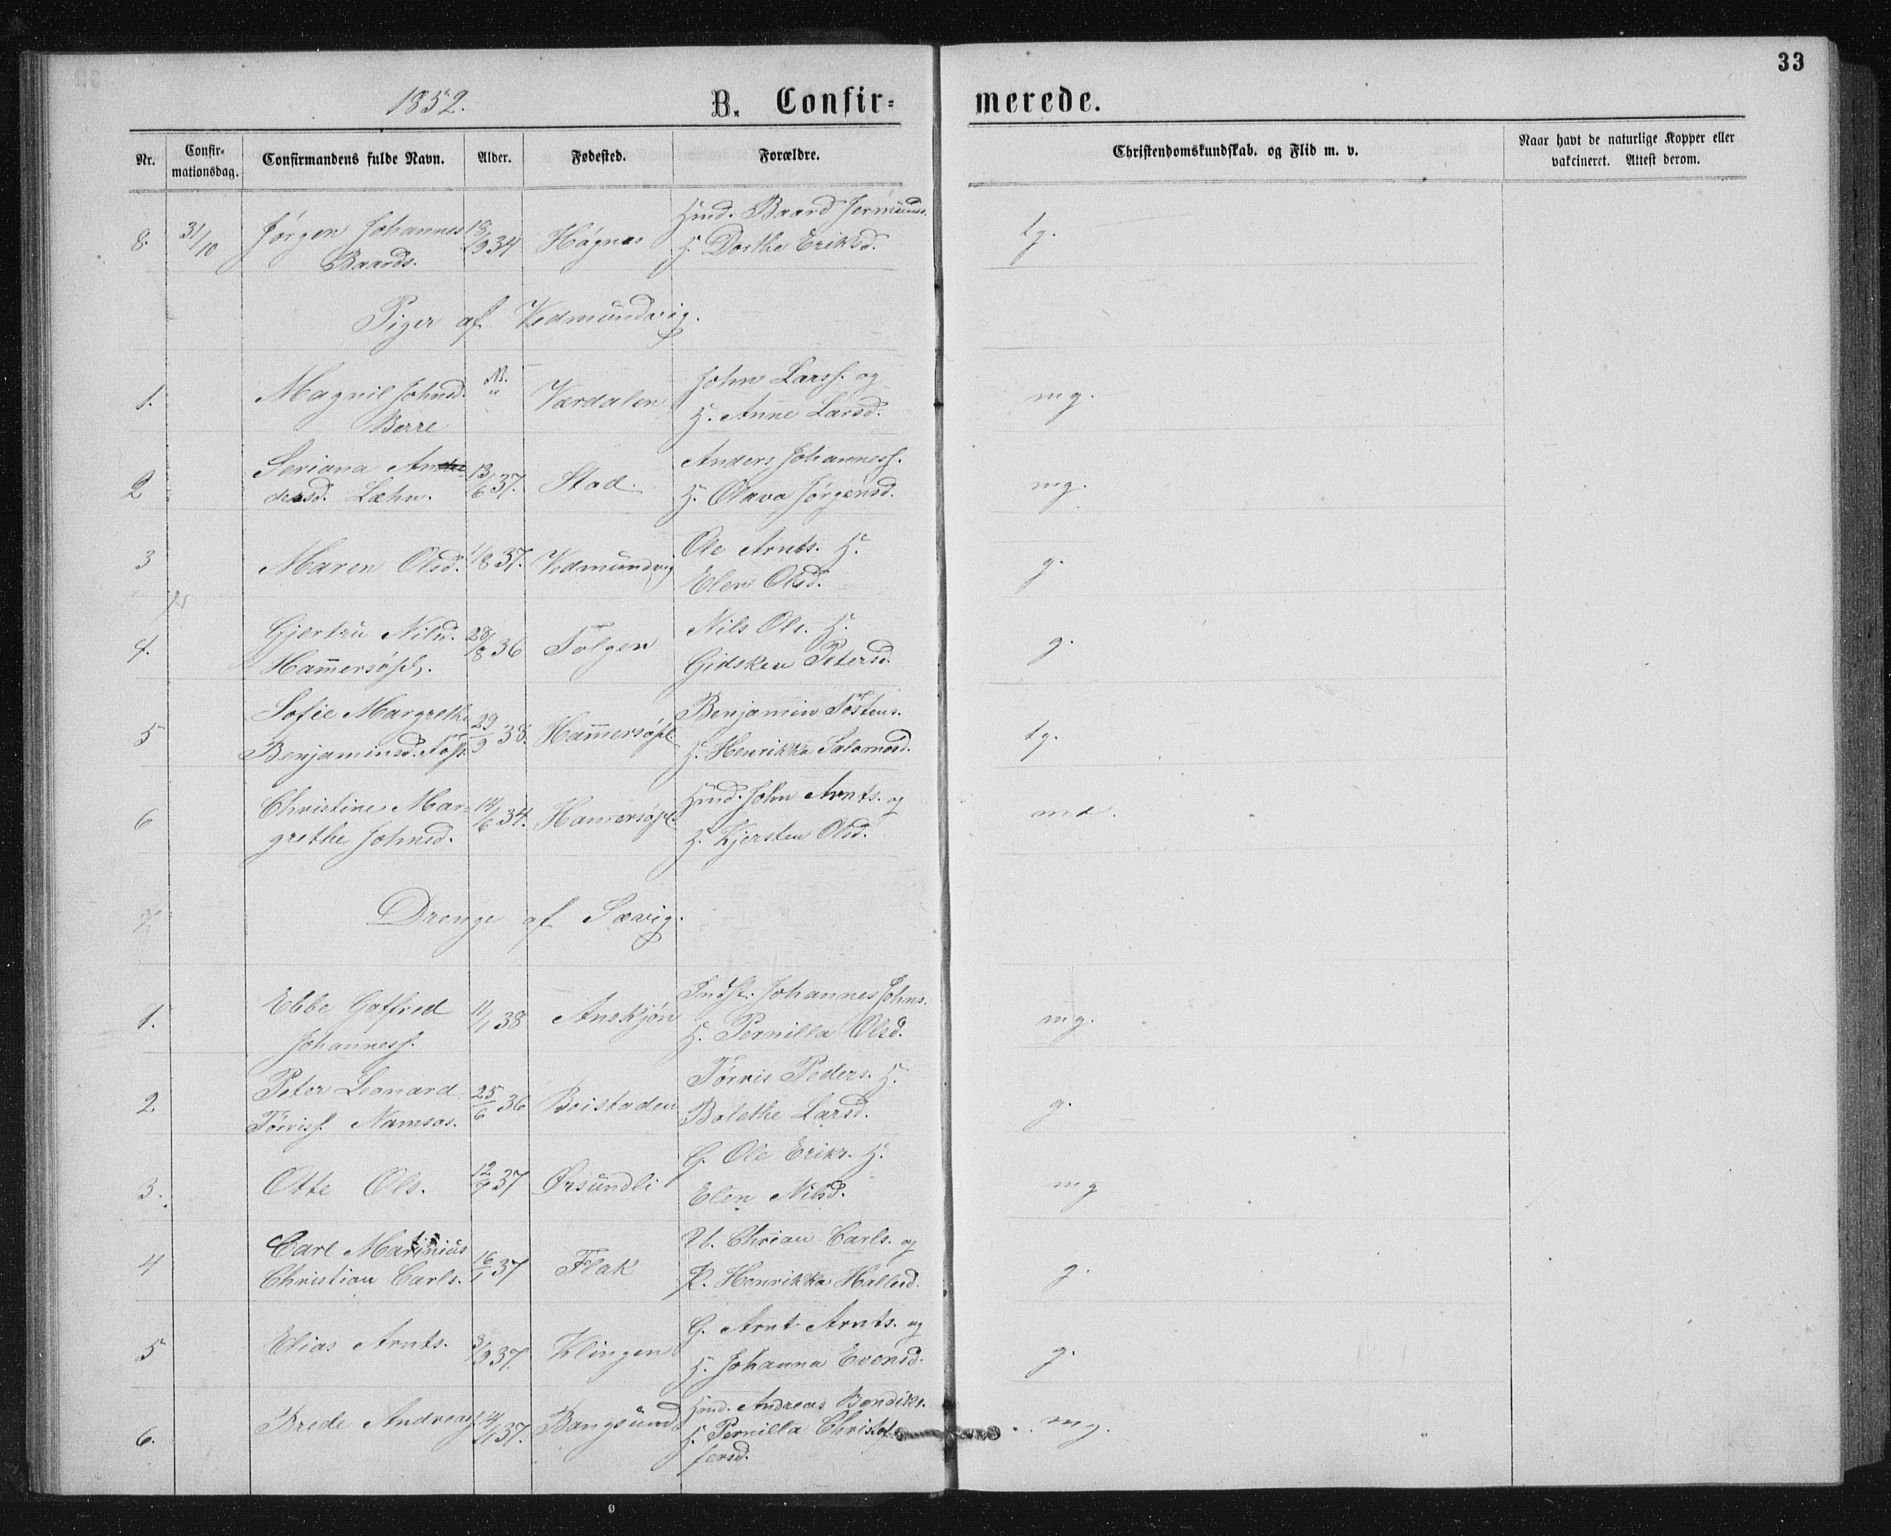 33
1852.
B. Confir-
merede.
Nr.
Confir-
mationsdag.
Confirmandens fulde Navn.
Alder.
Fødested.
Forældre.
Christendomskundskab. og Flid m. v.
Naar havt de naturlige Kopper eller
vakcineret. Attest derom.
8. 31/10 Jørgen Johannes 18/9 34 Høgnes Hmd. Baard Jermunds.
Baards. H. Dorthe Eriksd. tg.
Piger af Vedmundvig.
1. Magnil Johnsd. Værdalen John Larss. og mg.
Berre H. Anne Larsd.
2 Seriana An Anders Johanness.
dersd. Læhn. 13/6 37. Stad. H. Olava Jørgensd. mg.
3 Maren Olsd. 1/8 37. Vedmundvig Ole Arnts. H. g.
Elen Olsd.
4. Gjertru Nilsd. 28/8 36 Tolgen Nils Ols. H. g.
Hammersøpl. Gidsken Petersd.
5 Sofie Margrethe 29/9 38. Hammersøpl Benjamin Tostens. tg.
Benjaminsd. H. Henrikka Salomosd.
6 Christine Mar- 14/6 34. Hamersøpl. Hmd. John Arnts. og
grethe Johnsd. H. Kjersten Olsd.
7.
Drenge af Sævig.
1. Ebbe Gotfred 11/1 38 Anskjøn Indst. Johannes Johns. mg.
Johanness. H. Pernilla Olsd.
2 Peter Leonard 25/6 36 Boistaden Tørris Peders. H. g.
Tørriss. Namsos. Bolethe Larsd.
3. Otte Ols. 12/7 37 Ørsundli G. Ole Eriks. H. mg
Elen Nilsd.
4 Carl Martinius Chrian Carls. og
Christian Carls. 16/1 37 Flak Henrikka Hallesd. g.
5 Elias Arnts. 3/9 37. Klingen G. Arnt Arnts. og g.
H. Johanna Evensd.
6. Brede Andreas 14/1 37. Bangsund Hmd. Andreas Bendiks. mg.
H. Pernilla Christof-
fersd.